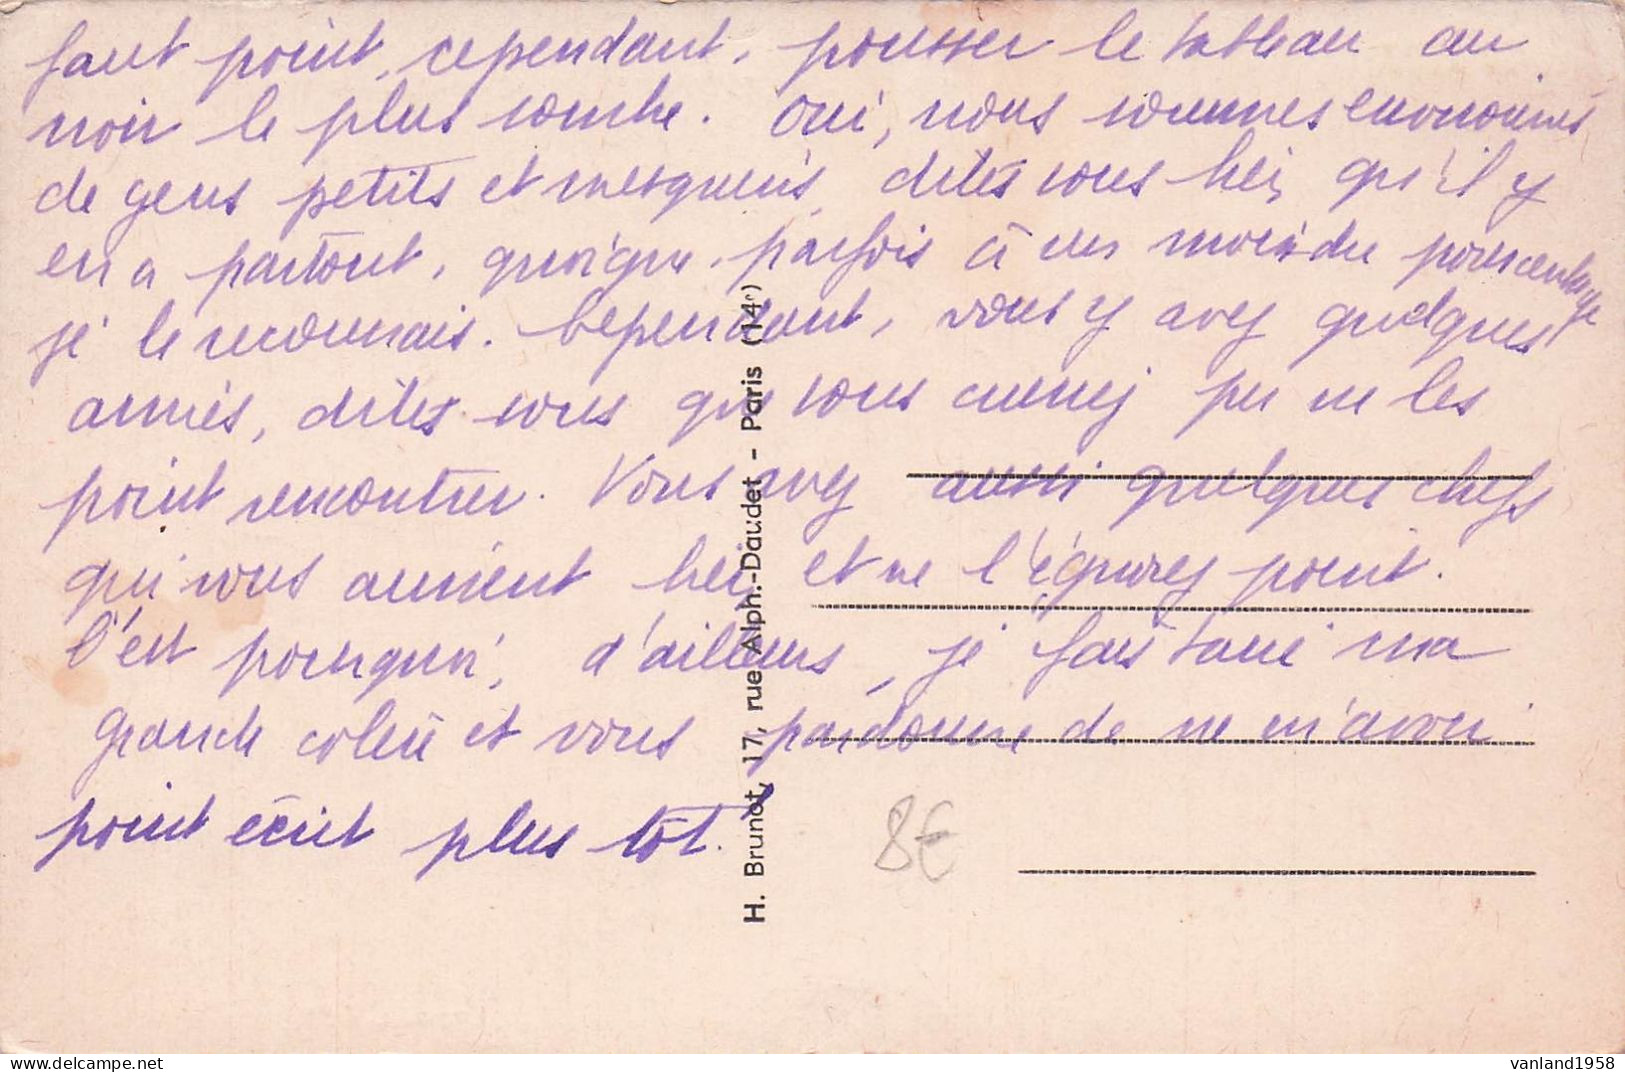 faut point, cependant, pousser le tableau au
noir le plus sombre. Oui, nous sommes environnés
de gens petits et mesquins, dites vous bien qu'il y
en a partout, quoique parfois à un moindre pourcentage
je le reconnais. Cependant, vous y avez quelques
amies, dites vous que vous auriez pu ne les
point rencontrer. Vous avez aussi quelques chefs
qui vous aiment bien et ne l'ignorez point.
C'est pourquoi, d'ailleurs, je fais taire ma
grande colère et vous pardonne de ne m'avoir
point écrit plus tôt.
H. Brunot, 17, rue Alph.-Daudet - Paris (14e)
8€
vanland1958